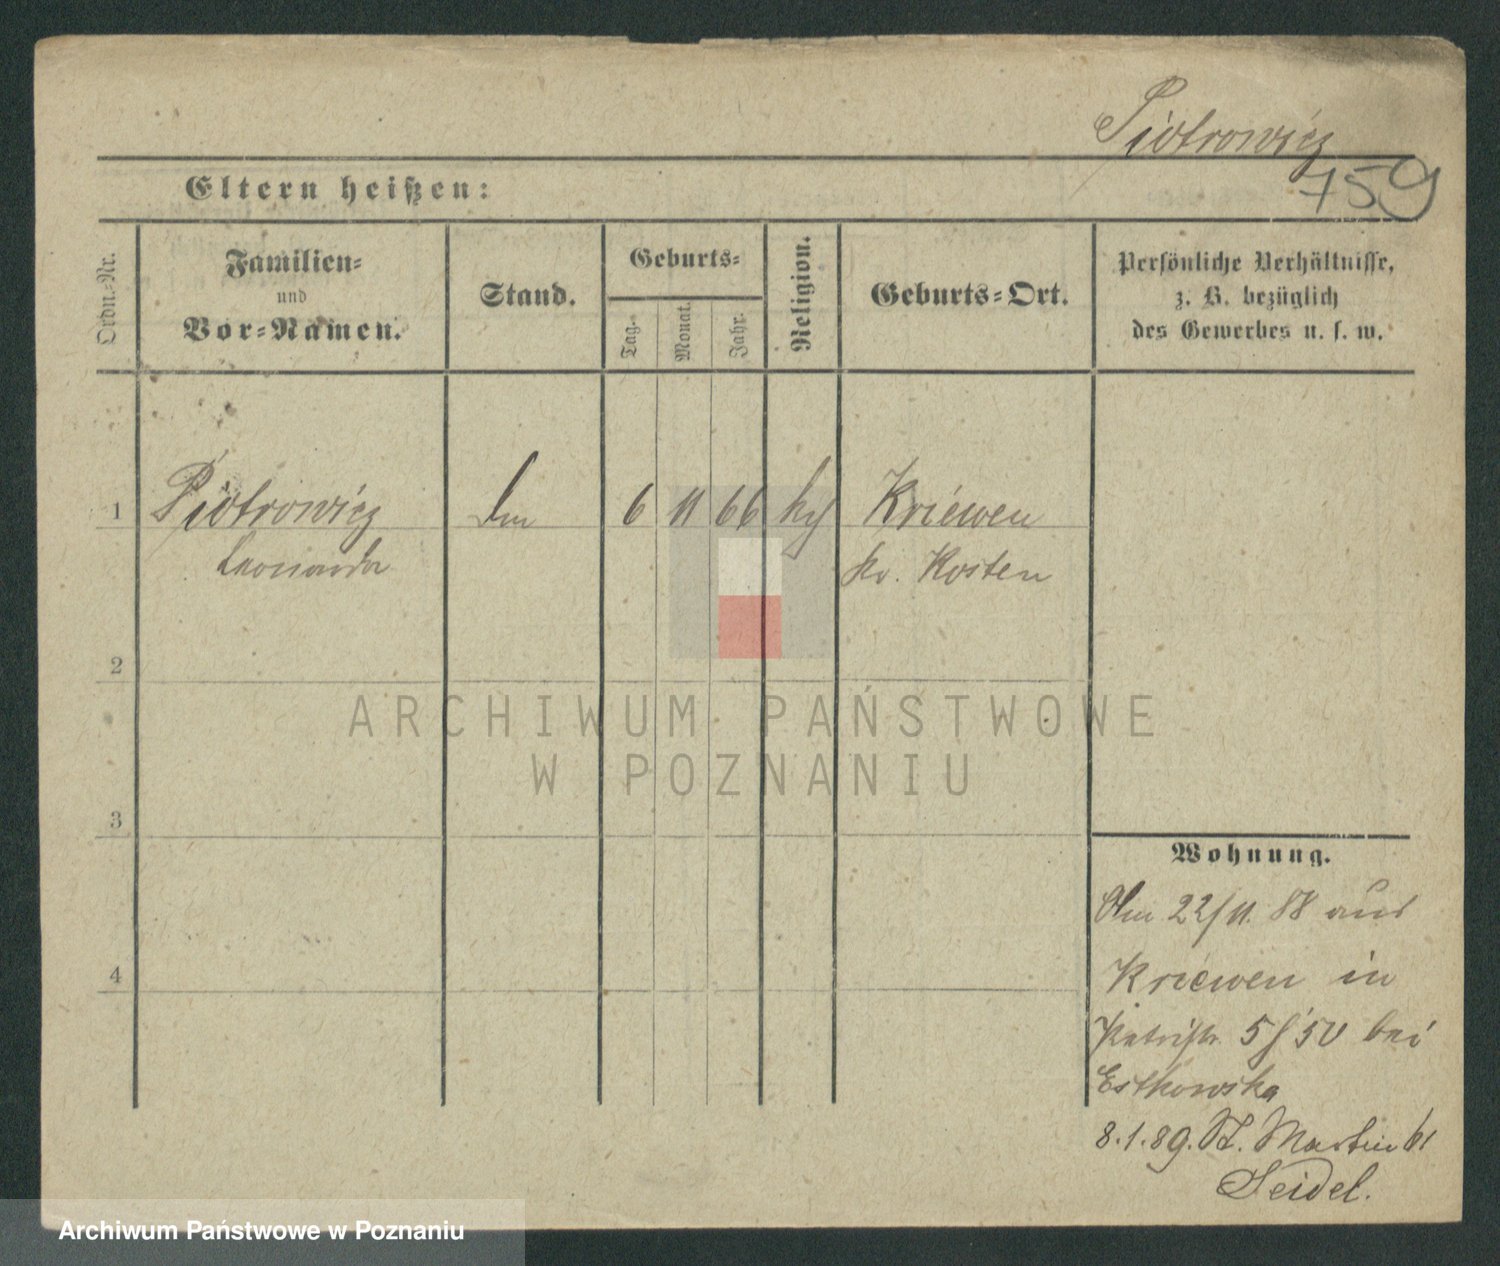 Piotrowicz
759
Eltern heißen:
Ordn.-Nr.
Familien-
und
Vor-Namen.
Stand.
Geburts-
Tag.
Monat.
Jahr.
Religion.
Geburts-Ort.
Persönliche Verhältnisse,
z. B. bezüglich
des Gewerbes u. s. w.
1 Piotrowicz 6 11 66 Kriewen
Leonarda Kr. Kosten
2
3
4
Wohnung.
Am 22/11. 88 aus
Kriewen in
5 bei
Estkowska
8.1.89. St. Martin 61
Seidel.
ARCHIWUM PAŃSTWOWE
W POZNANIU
Archiwum Państwowe w Poznaniu